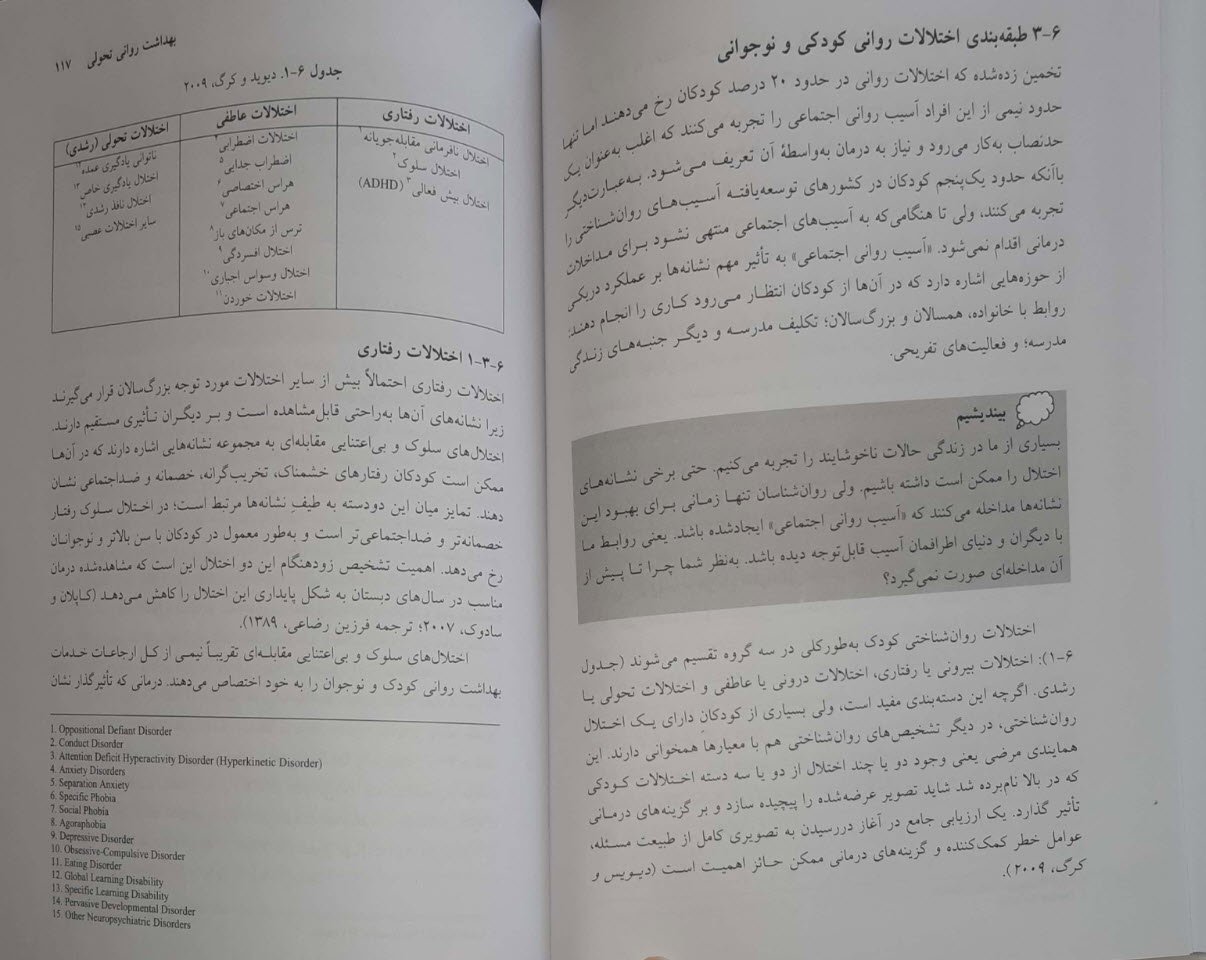 ۳-۶ طبقه‌بندی اختلالات روانی کودکی و نوجوانی
تخمین زده‌شده که اختلالات روانی در حدود ۲۰ درصد کودکان رخ می‌دهند اما تنها
حدود نیمی از این افراد آسیب روانی اجتماعی را تجربه می‌کنند که اغلب به‌عنوان یک
حدنصاب به‌کار می‌رود و نیاز به درمان به‌واسطهٔ آن تعریف می‌شود. به‌عبارت‌دیگر
باآنکه حدود یک‌پنجم کودکان در کشورهای توسعه‌یافته آسیب‌های روان‌شناختی را
تجربه می‌کنند، ولی تا هنگامی‌که به آسیب‌های اجتماعی منتهی نشود برای مداخلات
درمانی اقدام نمی‌شود. «آسیب روانی اجتماعی» به تأثیر مهم نشانه‌ها بر عملکرد دریکی
از حوزه‌هایی اشاره دارد که در آن‌ها از کودکان انتظار می‌رود کاری را انجام دهند:
روابط با خانواده، همسالان و بزرگ‌سالان؛ تکلیف مدرسه و دیگر جنبه‌های زندگی
مدرسه؛ و فعالیت‌های تفریحی.
بیندیشیم
بسیاری از ما در زندگی حالات ناخوشایند را تجربه می‌کنیم. حتی برخی نشانه‌های
اختلال را ممکن است داشته باشیم. ولی روان‌شناسان تنها زمانی برای بهبود این
نشانه‌ها مداخله می‌کنند که «آسیب روانی اجتماعی» ایجادشده باشد. یعنی روابط ما
با دیگران و دنیای اطرافمان آسیب قابل‌توجه دیده باشد. به‌نظر شما چرا تا پیش از
آن مداخله‌ای صورت نمی‌گیرد؟
اختلالات روان‌شناختی کودک به‌طورکلی در سه گروه تقسیم می‌شوند (جدول
۱-۶): اختلالات بیرونی یا رفتاری، اختلالات درونی یا عاطفی و اختلالات تحولی یا
رشدی. اگرچه این دسته‌بندی مفید است، ولی بسیاری از کودکانِ دارای یک اختلال
روان‌شناختی، در دیگر تشخیص‌های روان‌شناختی هم با معیارها همخوانی دارند. این
همایندی مرضی یعنی وجود دو یا چند اختلال از دو یا سه دسته اختلالات کودکی
که در بالا نام‌برده شد شاید تصویر عرضه‌شده را پیچیده سازد و بر گزینه‌های درمانی
تأثیر گذارد. یک ارزیابی جامع در آغاز دررسیدن به تصویری کامل از طبیعت مسئله،
عوامل خطر کمک‌کننده و گزینه‌های درمانی ممکن حائز اهمیت است (دیویس و
کرگ، ۲۰۰۹).
بهداشت روانی تحولی ۱۱۷
جدول ۶-۱. دیوید و کرگ، ۲۰۰۹
اختلالات رفتاری
اختلال نافرمانی مقابله‌جویانه۱
اختلال سلوک۲
اختلال بیش فعالی۳ (ADHD)
اختلالات عاطفی
اختلالات اضطرابی۴
اضطراب جدایی۵
هراس اختصاصی۶
هراس اجتماعی۷
ترس از مکان‌های باز۸
اختلال افسردگی۹
اختلال وسواس اجباری۱۰
اختلالات خوردن۱۱
اختلالات تحولی (رشدی)
ناتوانی یادگیری عمده۱۲
اختلال یادگیری خاص۱۳
اختلال نافذ رشدی۱۴
سایر اختلالات عصبی۱۵
۱-۳-۶ اختلالات رفتاری
اختلالات رفتاری احتمالاً بیش از سایر اختلالات مورد توجه بزرگ‌سالان قرار می‌گیرند
زیرا نشانه‌های آن‌ها به‌راحتی قابل‌مشاهده است و بر دیگران تأثیری مستقیم دارند.
اختلال‌های سلوک و بی‌اعتنایی مقابله‌ای به مجموعه نشانه‌هایی اشاره دارند که در آن‌ها
ممکن است کودکان رفتارهای خشمناک، تخریب‌گرانه، خصمانه و ضداجتماعی نشان
دهند. تمایز میان این دودسته به طیفِ نشانه‌ها مرتبط است؛ در اختلال سلوک رفتار
خصمانه‌تر و ضداجتماعی‌تر است و به‌طور معمول در کودکان با سن بالاتر و نوجوانان
رخ می‌دهد. اهمیت تشخیص زودهنگام این دو اختلال این است که مشاهده‌شده درمان
مناسب در سال‌های دبستان به شکل پایداری این اختلال را کاهش می‌دهد (کاپلان و
سادوک، ۲۰۰۷؛ ترجمه فرزین رضاعی، ۱۳۸۹).
اختلال‌های سلوک و بی‌اعتنایی مقابله‌ای تقریباً نیمی از کل ارجاعات خدمات
بهداشت روانی کودک و نوجوان را به خود اختصاص می‌دهند. درمانی که تأثیرگذار نشان
1. Oppositional Defiant Disorder
2. Conduct Disorder
3. Attention Deficit Hyperactivity Disorder (Hyperkinetic Disorder)
4. Anxiety Disorders
5. Separation Anxiety
6. Specific Phobia
7. Social Phobia
8. Agoraphobia
9. Depressive Disorder
10. Obsessive-Compulsive Disorder
11. Eating Disorder
12. Global Learning Disability
13. Specific Learning Disability
14. Pervasive Developmental Disorder
15. Other Neuropsychiatric Disorders